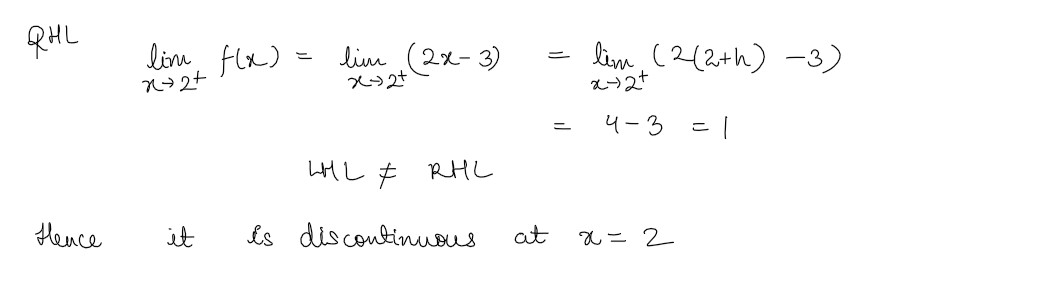 RHL
lim x→2⁺ f(x) = lim x→2⁺ (2x-3) = lim x→2⁺ (2(2+h) -3)
= 4-3 = 1
LHL ≠ RHL
Hence it is discontinuous at x = 2